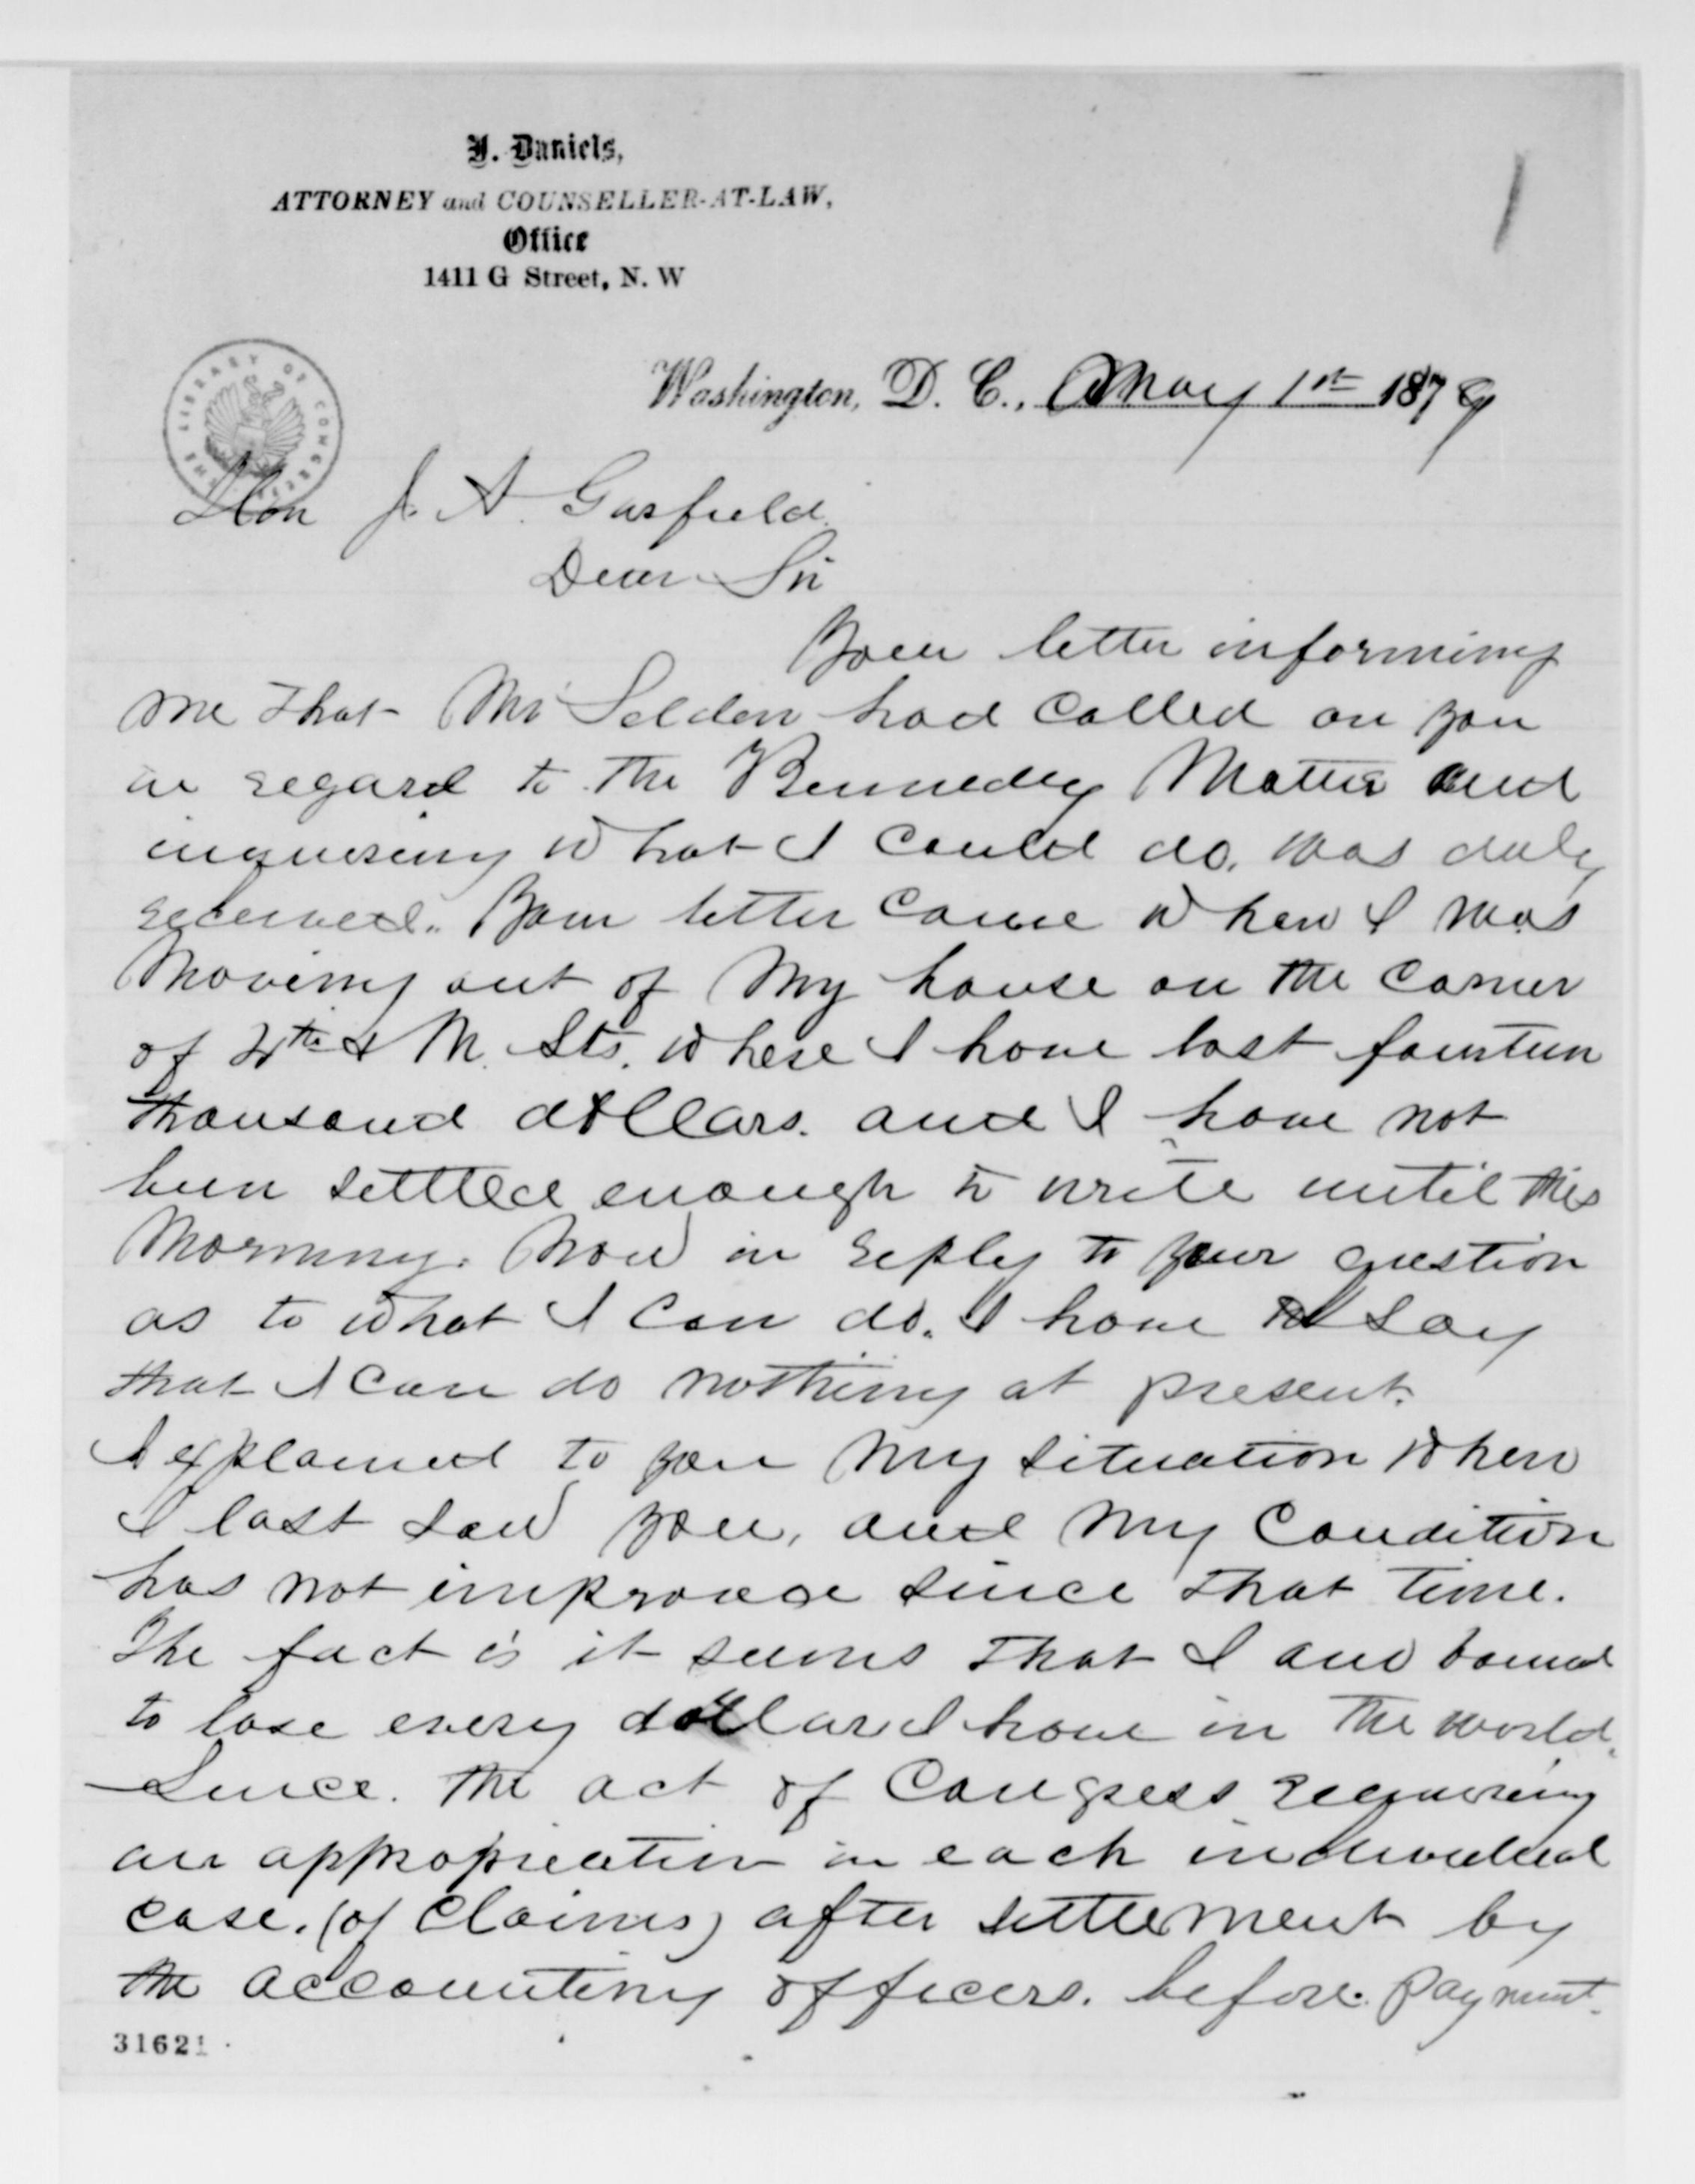 Daniels,
ATTORNEY and COUNSELLER-AT-LAW,
Office
1411 G Street, N. W
Washington, D. C., May 1st 1879
THE LIBRARY OF CONGRESS
Hon J. A. Garfield.
Dear Sir
Your letter informing
me that Mr Selden had called on you
in regard to the Matter and
inquiring what I could do, was duly
received. Your letter came when I was
Moving out of My house on the corner
of & M. Sts. where I have lost fourteen
thousand dollars. and I have not
been settled enough to write until this
Morning. Now in reply to your question
as to what I can do. I have to say
that I can do nothing at present.
I explained to you My situation when
I last saw you, and My Condition
has not improved since that time.
The fact is it seems that I am bound
to lose every dollar I have in the world.
Since. the act of Congress requiring
an appropriation in each individual
case. (of Claims) after settlement by
the accounting officers. before payment.
31621